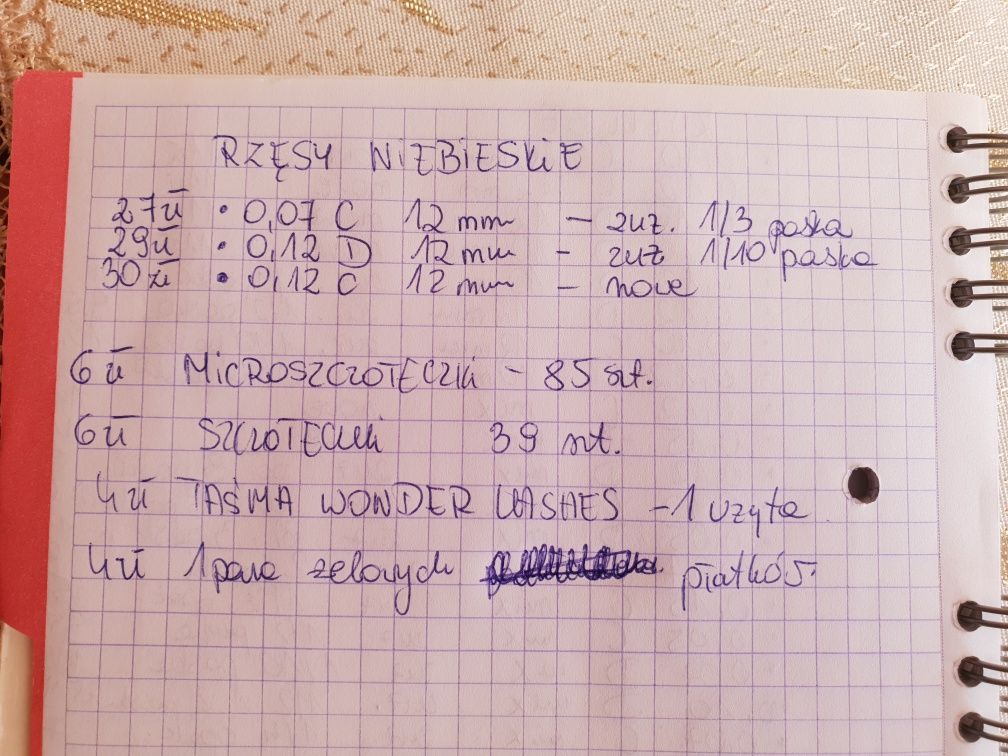 RZĘSY NIEBIESKIE
27 zł • 0,07 C 12 mm – zuż. 1/3 paska
29 zł • 0,12 D 12 mm – zuż 1/10 paska
30 zł • 0,12 C 12 mm – nowe
6 zł MICROSZCZOTECZKI – 85 szt.
6 zł SZCZOTECZKI 39 szt.
4 zł TAŚMA WONDER LASHES – 1 użyta
4 zł 1 para żelowych płatków